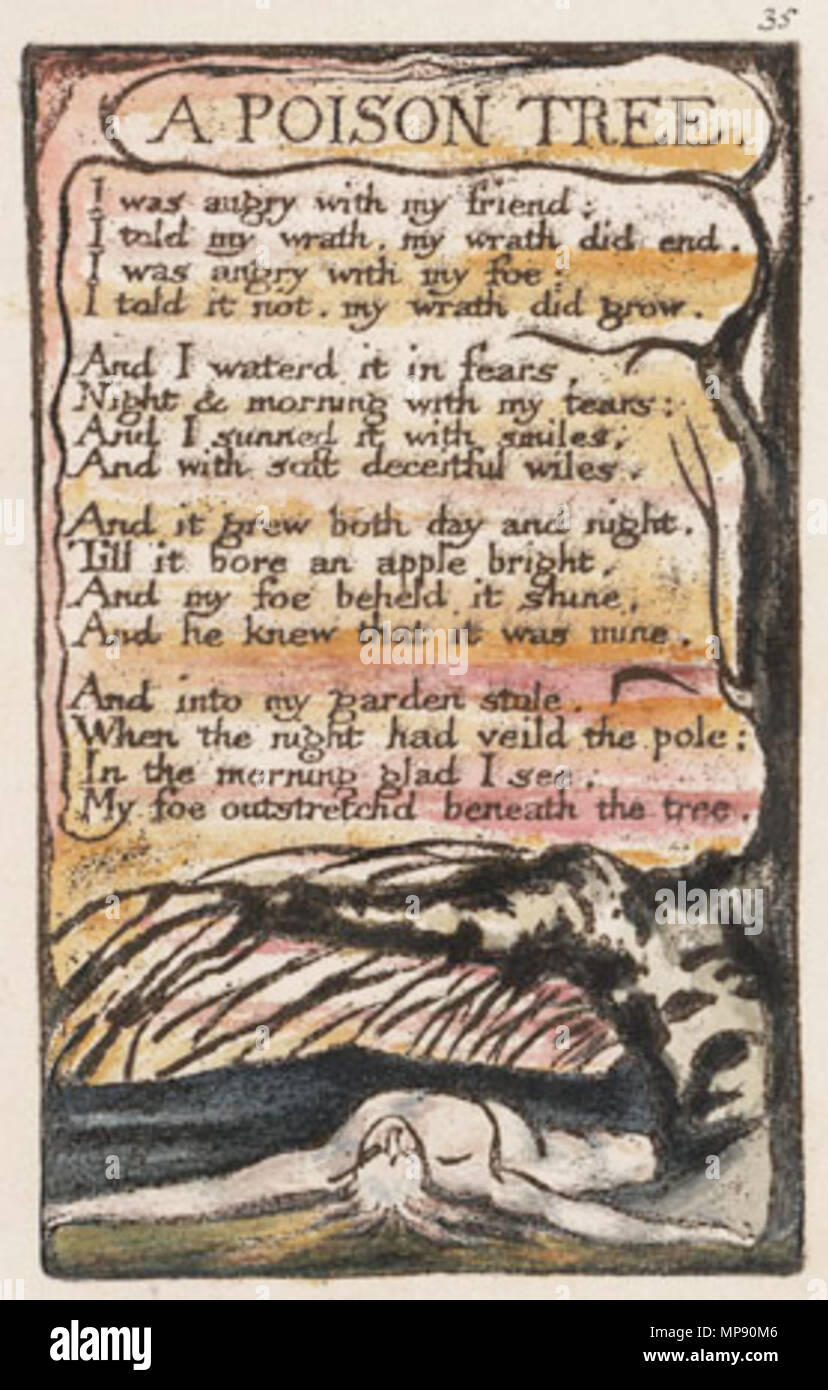 35
A POISON TREE.
I was angry with my friend;
I told my wrath, my wrath did end.
I was angry with my foe:
I told it not, my wrath did grow.
And I waterd it in fears,
Night & morning with my tears:
And I sunned it with smiles,
And with soft deceitful wiles.
And it grew both day and night.
Till it bore an apple bright.
And my foe beheld it shine,
And he knew that it was mine.
And into my garden stole.
When the night had veild the pole;
In the morning glad I see;
My foe outstretchd beneath the tree.
alamy
Image ID: MP90M6
www.alamy.com